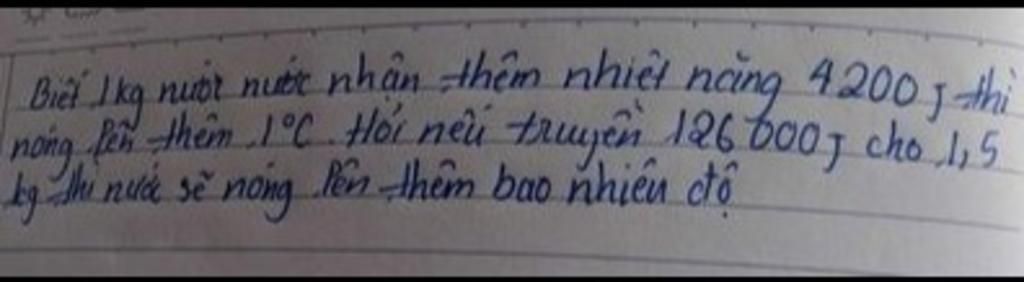 Biết 1kg nước nước nhận thêm nhiệt năng 4200J thì
nóng lên thêm 1°C. Hỏi nếu truyền 126000J cho 1,5
kg thì nước sẽ nóng lên thêm bao nhiêu độ